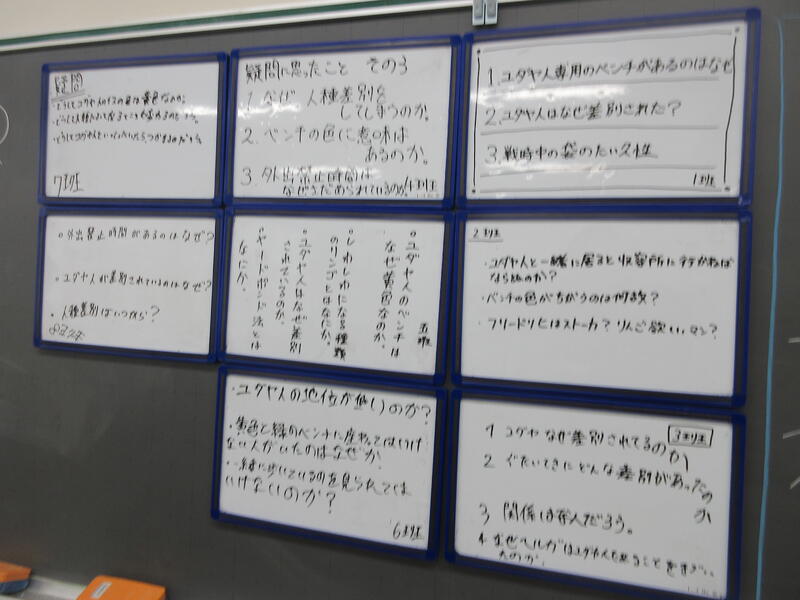 疑問
・どうしてユダヤ人のイスの色は黄色なのか。
7班
疑問に思ったこと その3
1. なぜ 人種差別を
してしまうのか。
2. ベンチの色に意味は
あるのか。
3. 外出禁止時間は
なぜさだめられているのか。
4班
1. ユダヤ人専用のベンチがあるのはなぜ
2. ユダヤ人はなぜ差別された?
3. 戦時中の袋のたい久性
1班
・外出禁止時間があるのはなぜ?
・ユダヤ人が差別されているのはなぜ?
・人種差別はいつから?
8班
五班
・ユダヤ人のベンチは
なぜ黄色なのか。
・しわしわになる種類
のリンゴとはなにか。
・ユダヤ人はなぜ差別
されているのか。
・ヤードポンド法とは
なにか。
2班
・ユダヤ人と一緒に居ると収容所に行かねば
ならぬのか?
・ベンチの色がちがうのは何故?
・フリードリヒはストーカー? りんご欲しいマン?
・ユダヤ人の地位が低いのか?
・黄色と緑のベンチに座わってはいけ
ない人がいたのはなぜか
・一緒に歩いているのを見られては
いけないのか?
6班
3班
1 ユダヤなぜ差別されてるのか
2 ぐたいてきにどんな差別があったのか
3 関係は友人だろう。
4. なぜヘルガはユダヤ人
たのか。